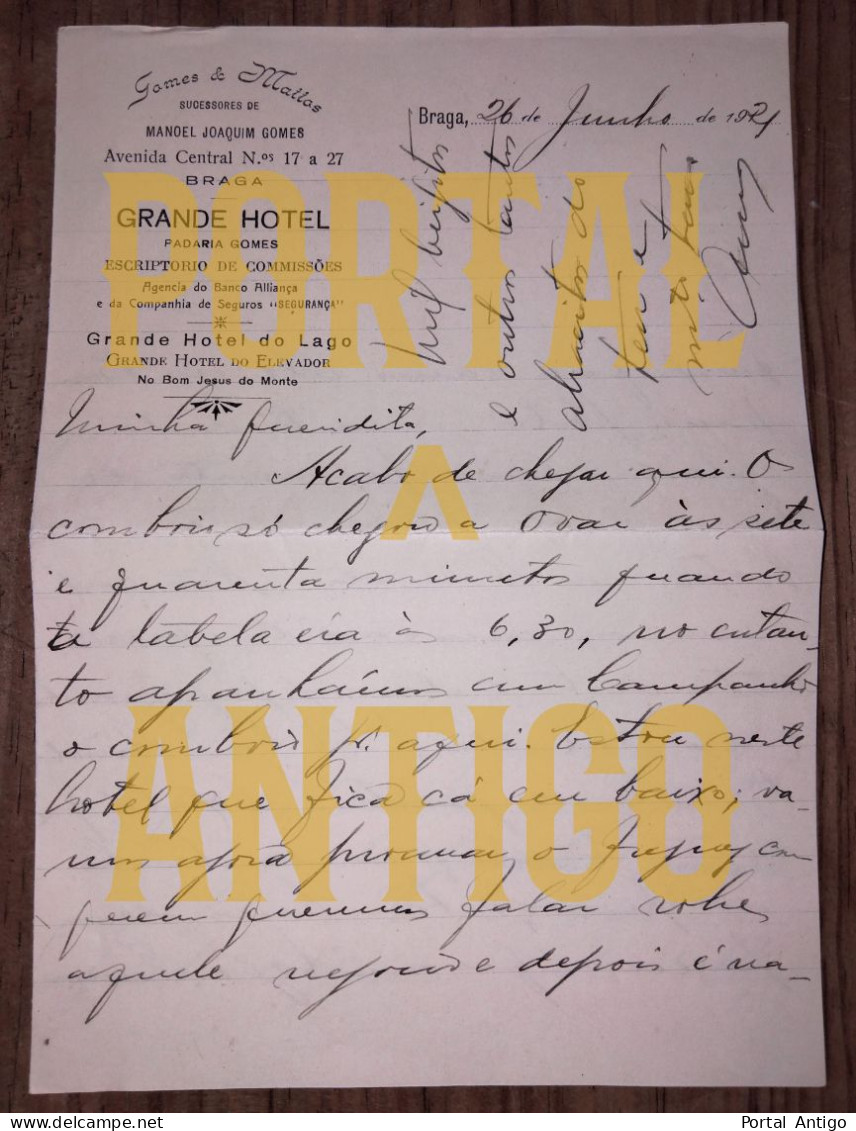 Gomes & Mattos
SUCESSORES DE
MANOEL JOAQUIM GOMES
Avenida Central N.os 17 a 27
BRAGA
GRANDE HOTEL
PADARIA GOMES
ESCRIPTORIO DE COMMISSÕES
Agencia do Banco Alliança
e da Companhia de Seguros "SEGURANÇA"
Grande Hotel do Lago
GRANDE HOTEL DO ELEVADOR
No Bom Jesus do Monte
Braga, 26 de Junho de 1921
Mil beijitos
e outros tantos
abracitos do
teu e
muito teu
Minha queridita,
Acabo de chegar aqui. O
comboio só chegou a Ovar às sete
e quarenta minutos quando
a tabela era às 6,30, no entan-
to apanhámos em Campanhã
o comboio pr. aqui. Estou neste
hotel que fica cá em baixo; va-
mos agora procurar o com
quem queremos falar sobre
aquele negocio e depois é va-
PORTAL
A
ANTIGO
delcampe.net
Portal Antigo